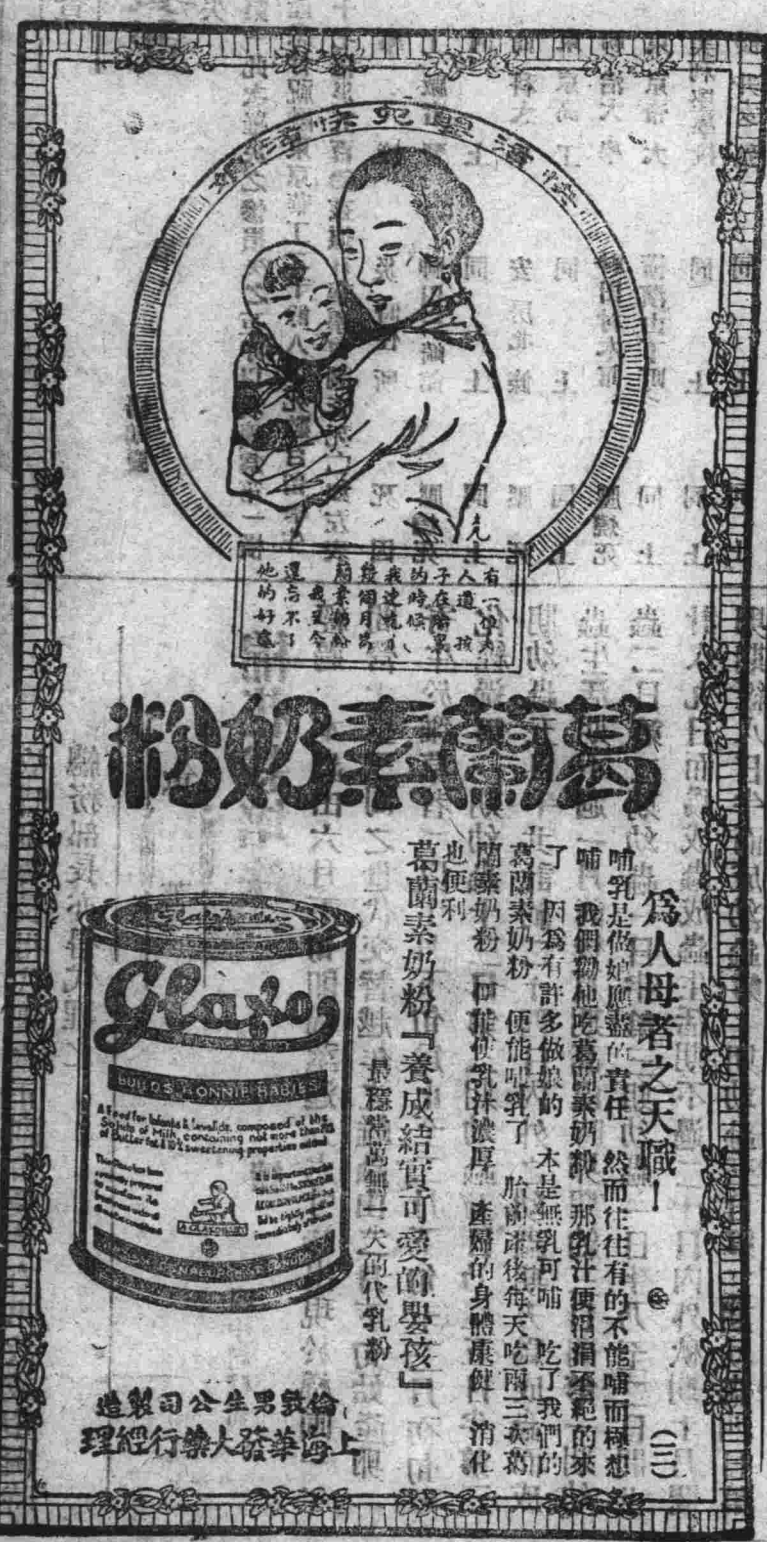 快活嬰兒快活娘
有一位夫
人道 孩
子在胎裏
的時候
我連吃了
幾個月葛
蘭素奶粉
我至今
還忘不了
他的好處
葛蘭素奶粉
為人母者之天職！ (二)
哺乳是做娘應盡的責任 然而往往有的不能哺而極想
哺 我們勸他吃葛蘭素奶粉 那乳汁便涓涓不絕的來
了 因為有許多做娘的 本是無乳可哺 吃了我們的
葛蘭素奶粉 便能哺乳了 胎前產後每天吃兩三次葛
蘭素奶粉 可能使乳汁濃厚 產婦的身體康健 消化
也便利
葛蘭素奶粉『養成結實可愛的嬰孩』
最穩當萬無一失的代乳粉
Glaxo
BUILDS BONNIE BABIES
A Food for Infants & Invalids, composed of the
Solids of Milk, containing not more than
of Butter fat & 10% sweetening properties added
倫敦男生公司製造
上海華發大藥行經理